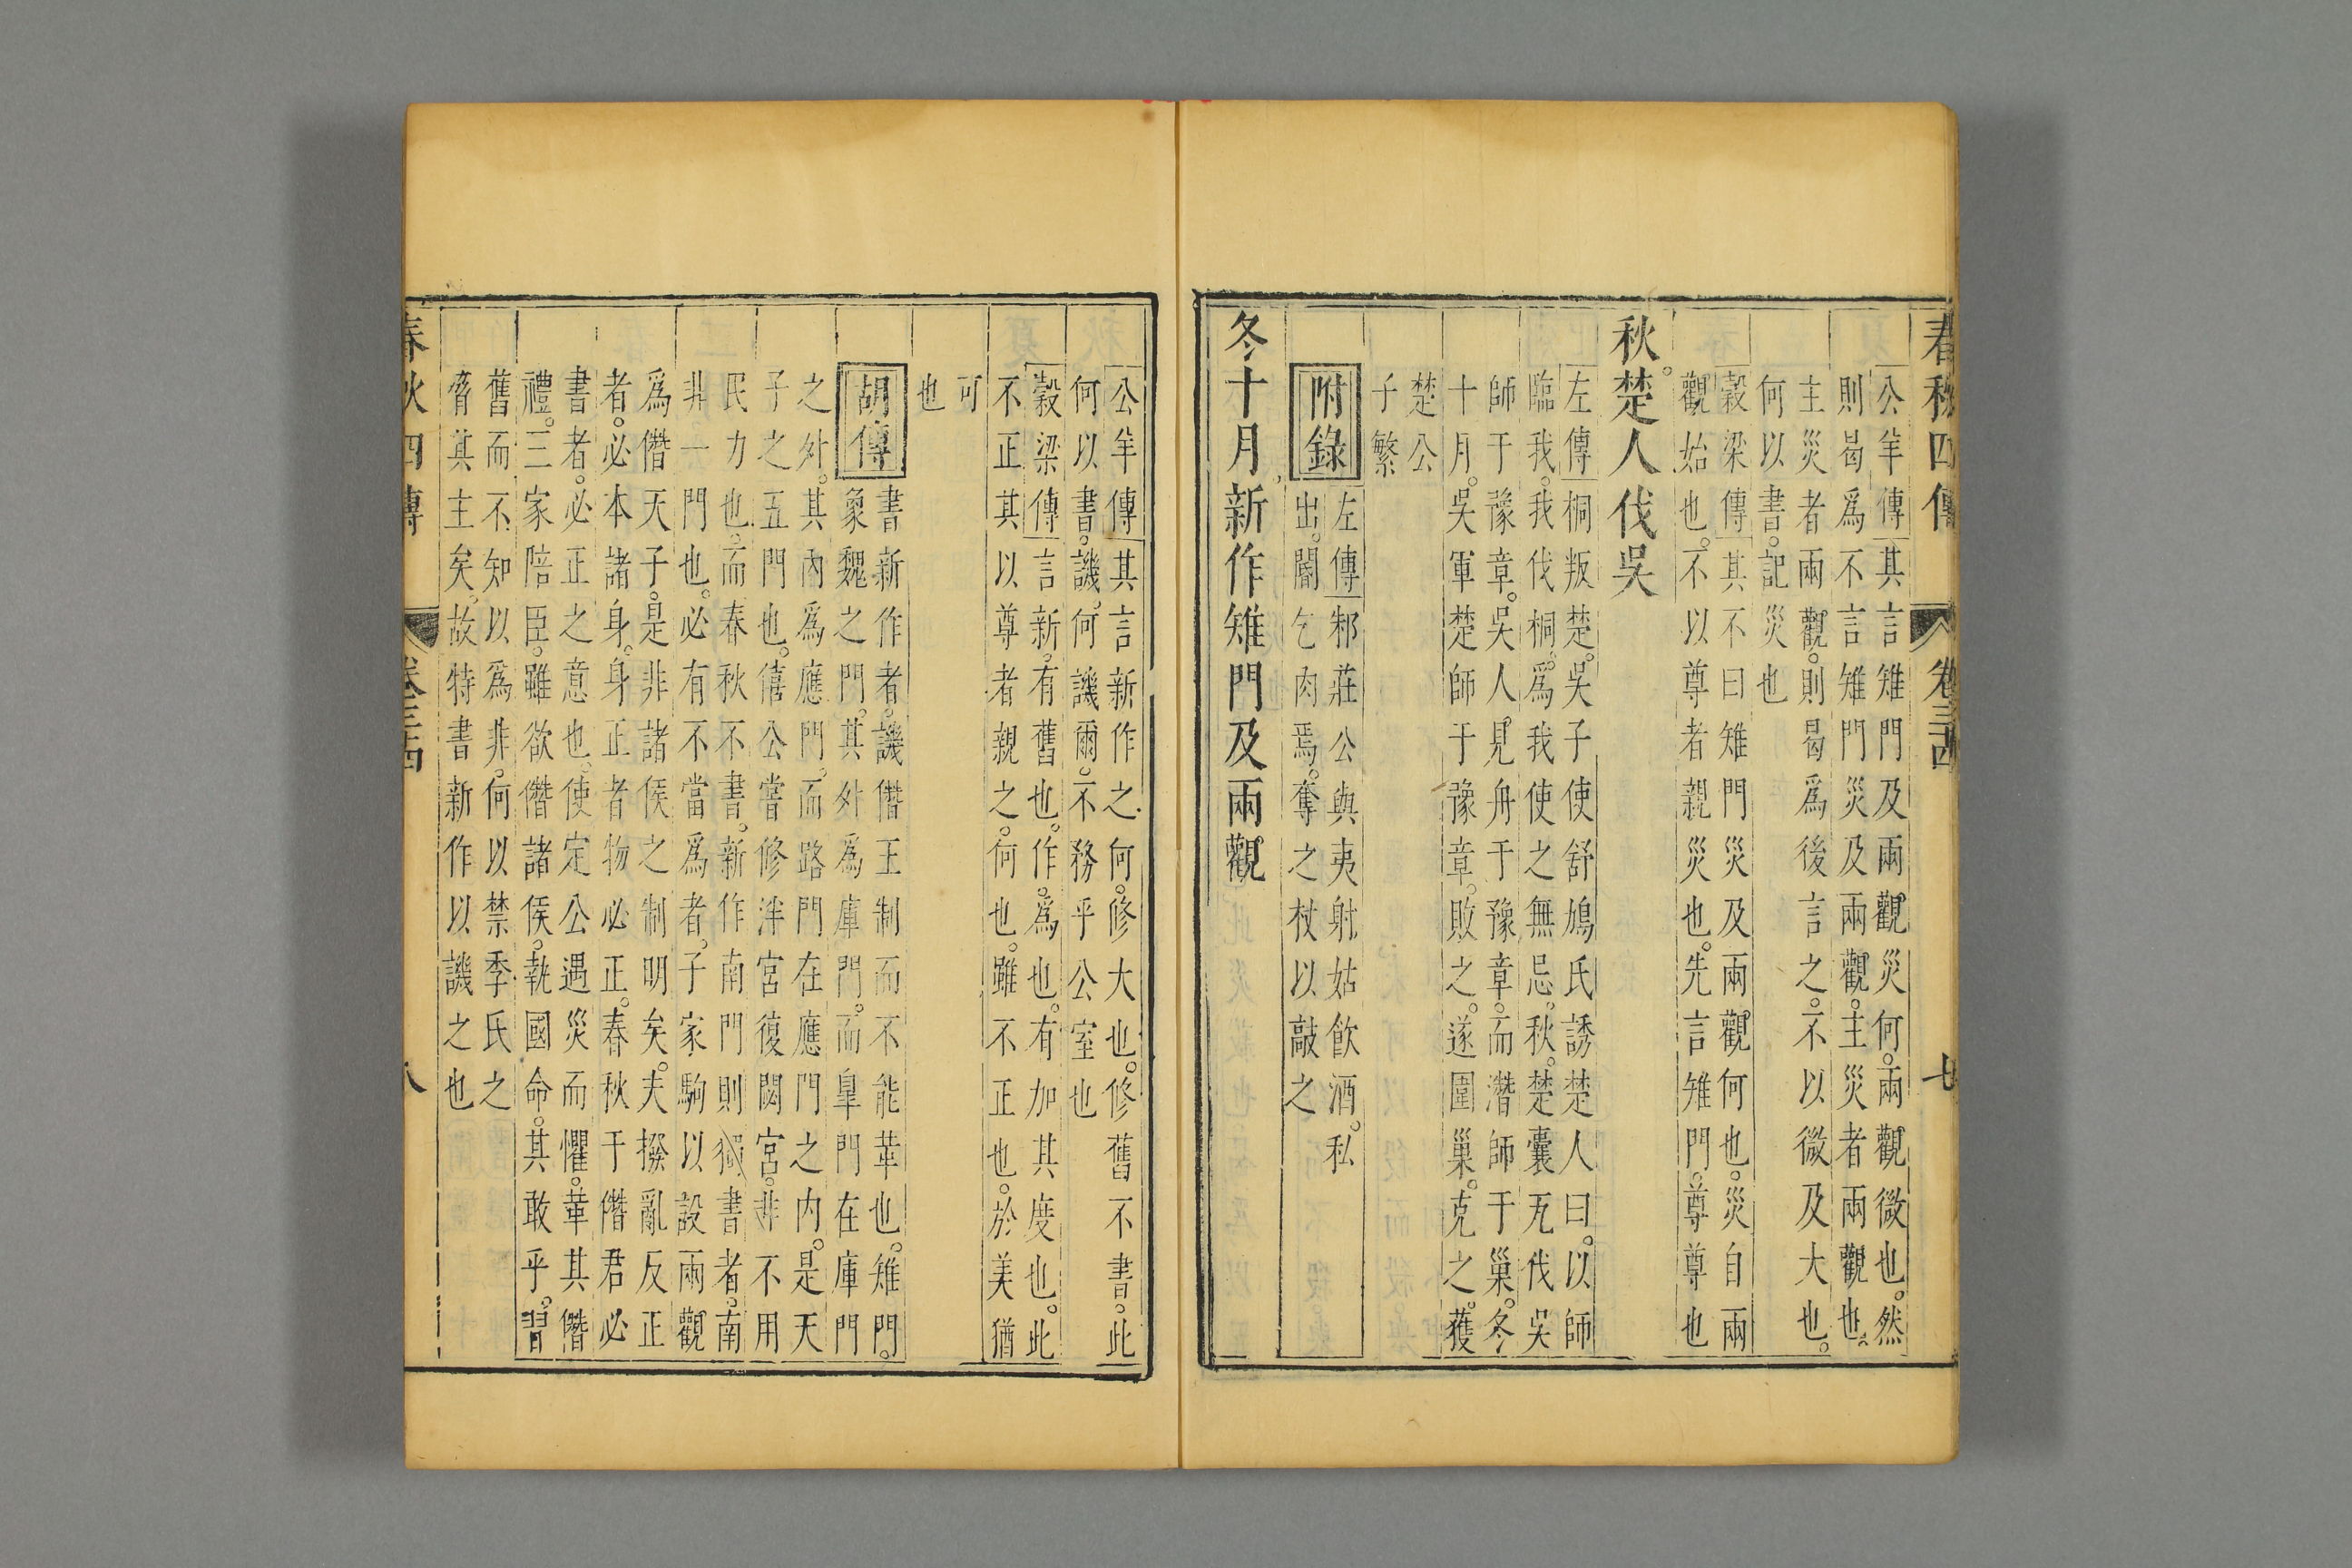 春秋四傳 卷三十四 七
公羊傳其言雉門及兩觀災何。兩觀微也。然
則曷爲不言雉門災及兩觀。主災者兩觀也。
主災者兩觀。則曷爲後言之。不以微及大也。
何以書。記災也
穀梁傳其不曰雉門災及兩觀何也。災自兩
觀始也。不以尊者親災也。先言雉門。尊尊也
秋。楚人伐吳
左傳桐叛楚。吳子使舒鳩氏誘楚人曰。以師
臨我。我伐桐。爲我使之無忌。秋。楚囊瓦伐吳
師于豫章。吳人見舟于豫章。而潛師于巢。冬
十月。吳軍楚師于豫章。敗之。遂圍巢。克之。獲
楚公
子繁
附錄
左傳邾莊公與夷射姑飲酒。私
出。閽乞肉焉。奪之杖以敲之
冬十月。新作雉門及兩觀
公羊傳其言新作之何。修大也。修舊不書。此
何以書。譏。何譏爾。不務乎公室也
穀梁傳言新。有舊也。作。爲也。有加其度也。此
不正其以尊者親之。何也。雖不正也。於美猶
可
也
胡傳
書新作者。譏僭王制而不能革也。雉門。
象魏之門。其外爲庫門。而皐門在庫門
之外。其內爲應門。而路門在應門之內。是天
子之五門也。僖公嘗修泮宮復閟宮。非不用
民力也。而春秋不書。新作南門則獨書者。南
非一門也。必有不當爲者。子家駒以設兩觀
爲僭天子。是非諸侯之制明矣。夫撥亂反正
者。必本諸身。身正者物必正。春秋于僭君必
書者。必正之意也。使定公遇災而懼。革其僭
禮。三家陪臣。雖欲僭諸侯。執國命。其敢乎。習
舊而不知以爲非。何以禁季氏之
脅其主矣。故特書新作以譏之也
春秋四傳 卷三十四 八